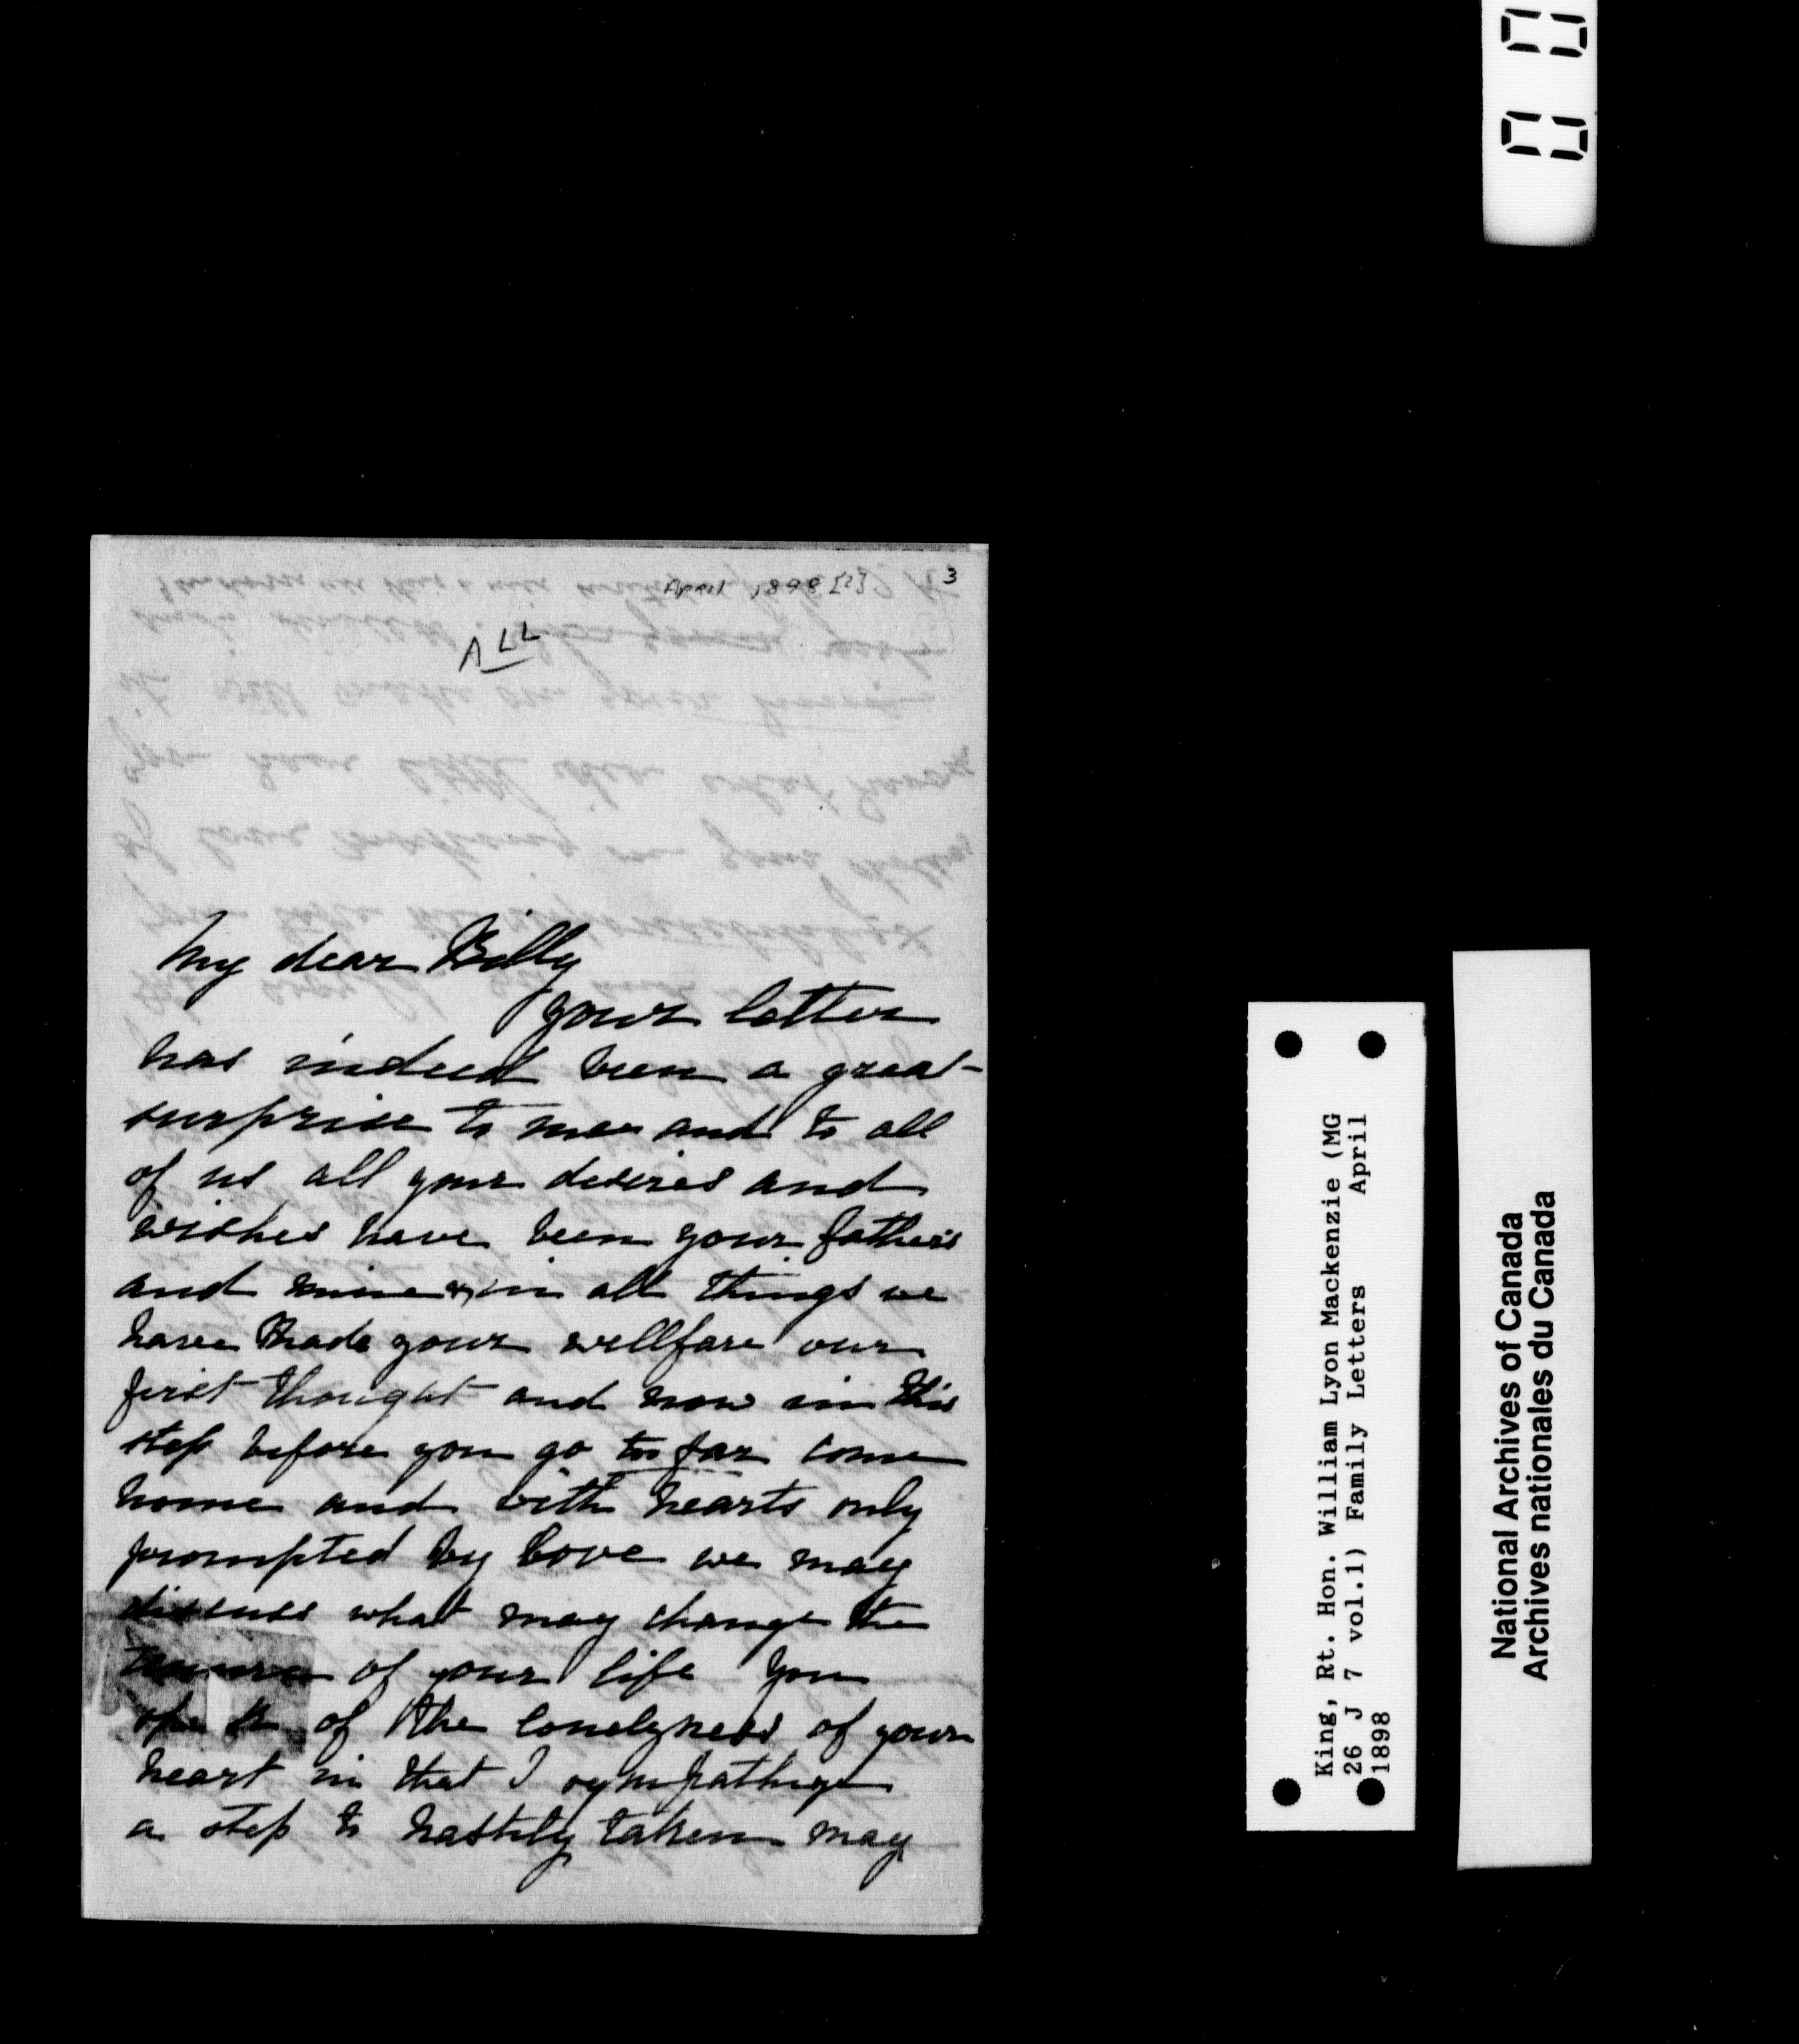 April 1898 [?]
3
ALL
My dear Billy
your letter
has indeed been a great
surprise to me and to all
of us all your desires and
wishes have been your father's
and mine in all things we
have made your wellfare our
first thought and now in this
step before you go too far come
home and with hearts only
prompted by love we may
discuss what may change the
of your life You
speak of the lonelyness of your
heart in that I sympathize
a step to hastily taken may
King, Rt. Hon. William Lyon Mackenzie (MG
26 J 7 vol.1) Family Letters April
1898
National Archives of Canada
Archives nationales du Canada